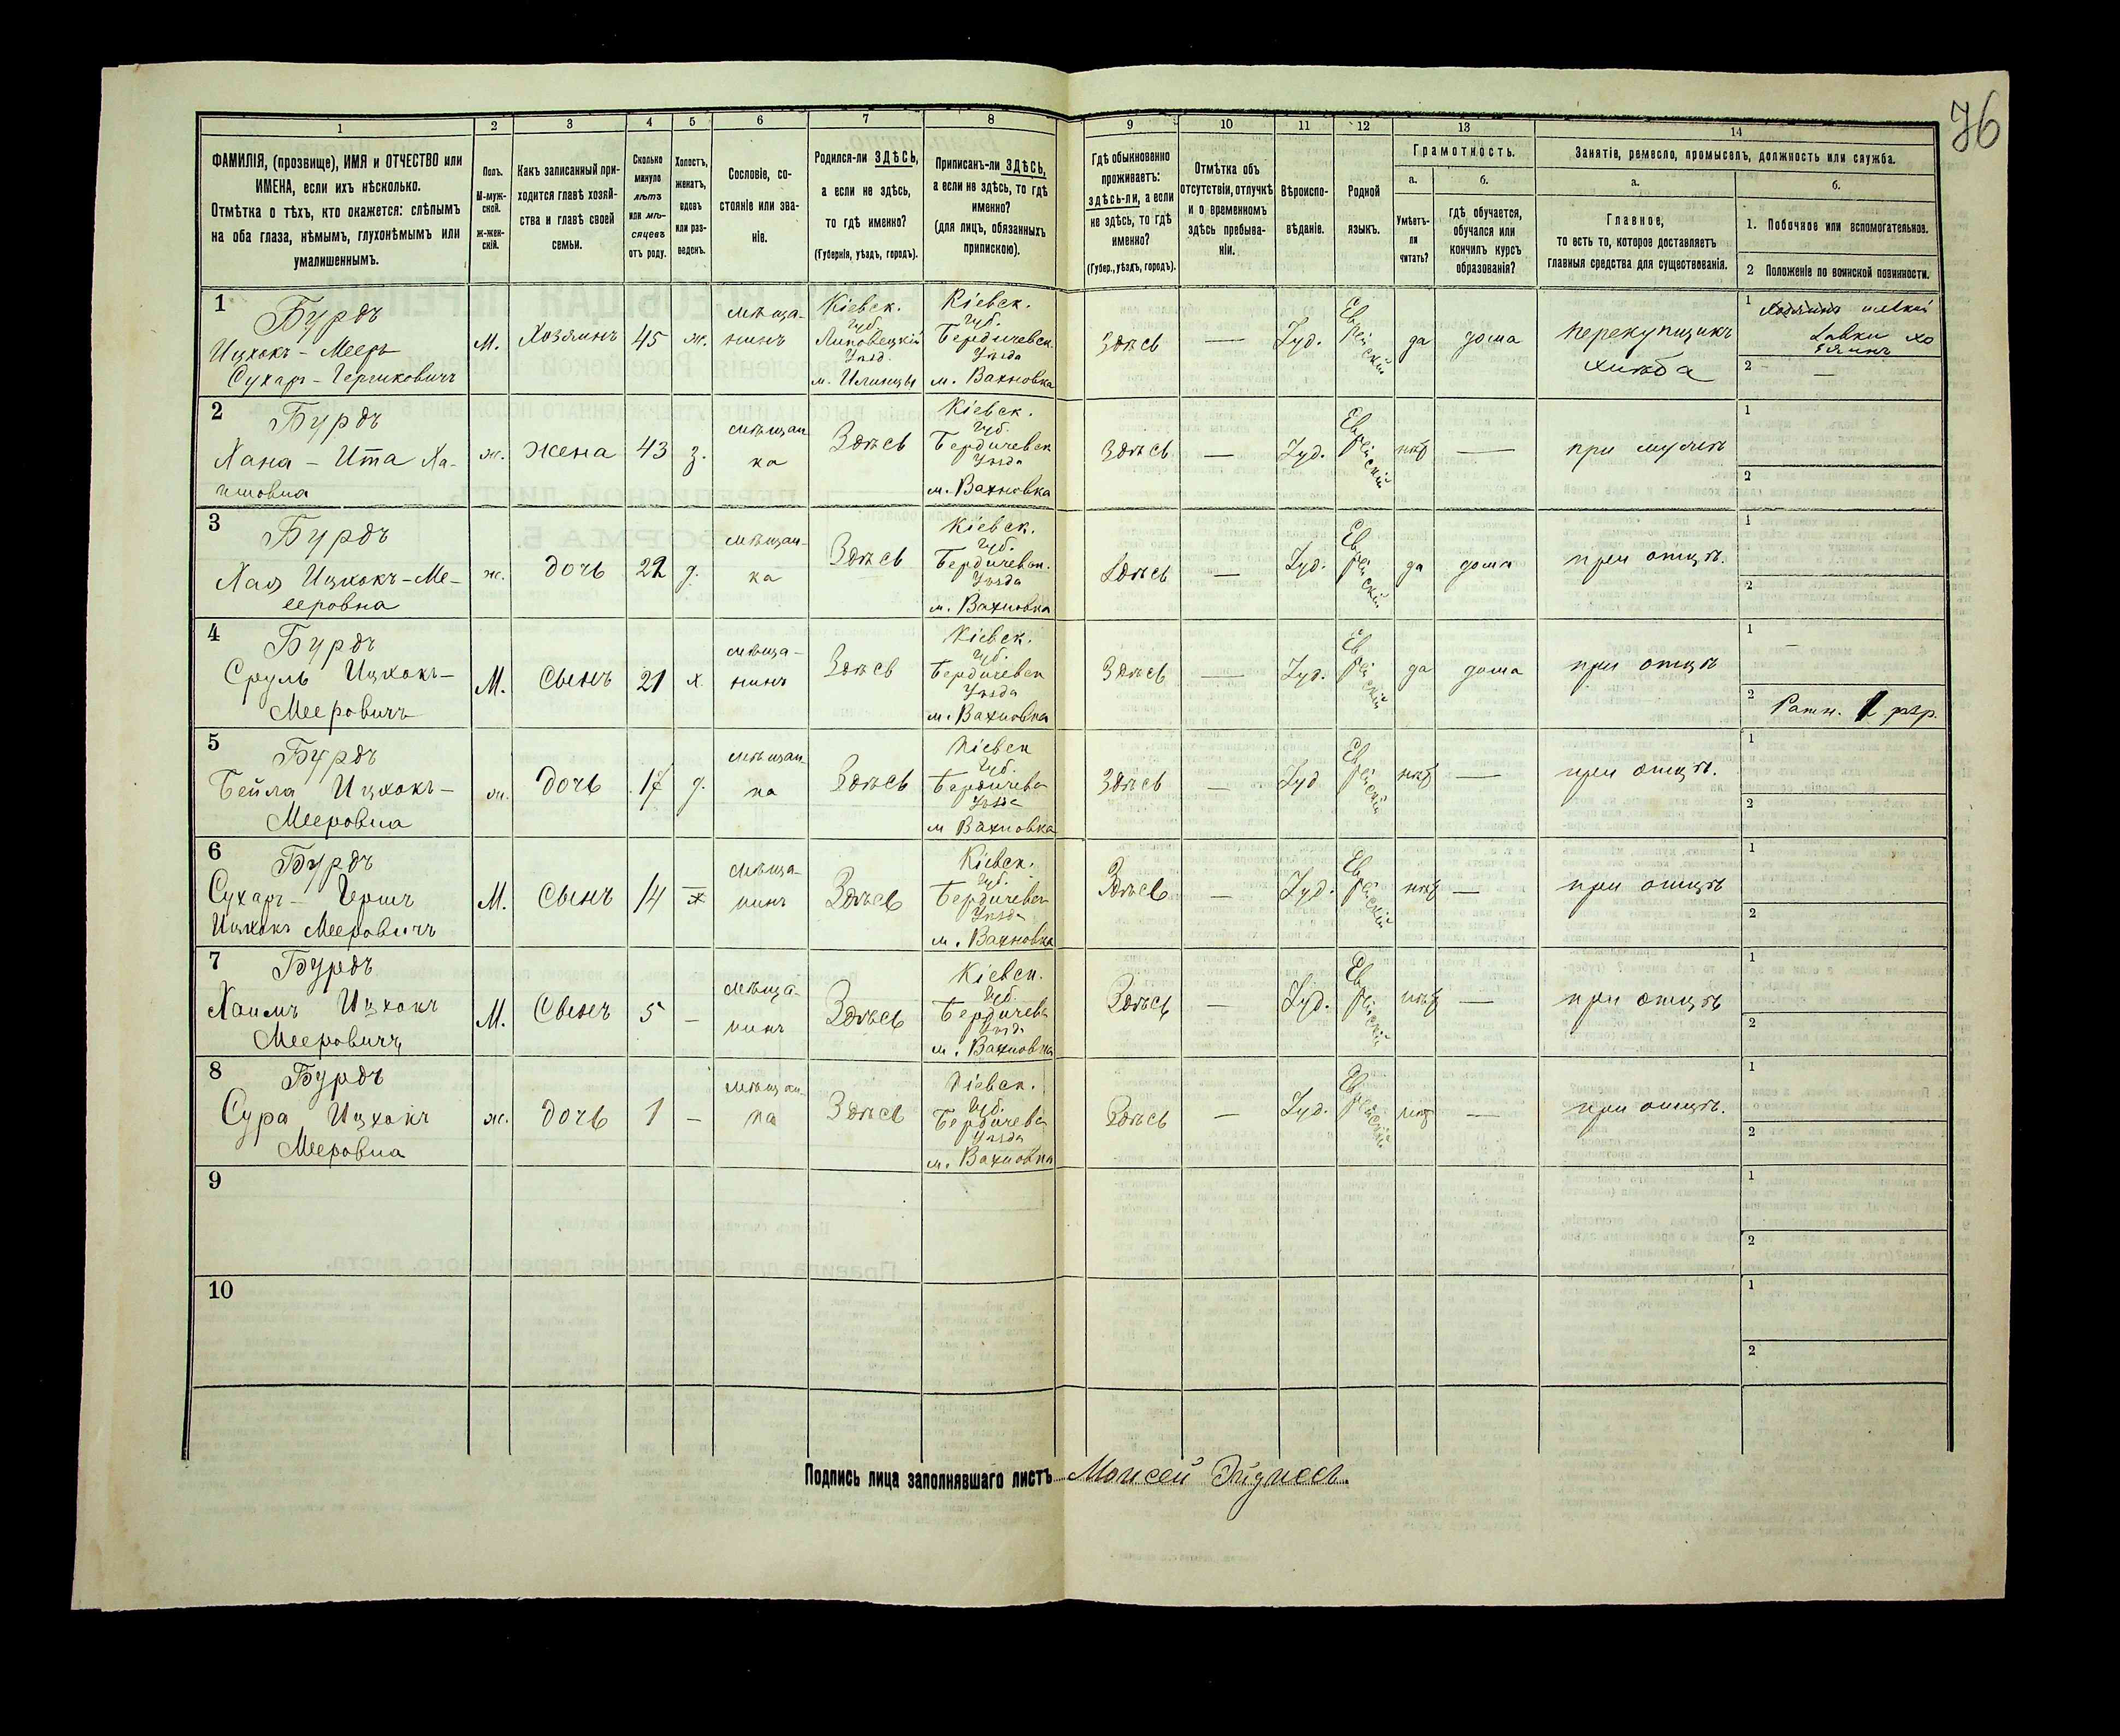 76
1 2 3 4 5 6 7 8 9 10 11 12 13 14
ФАМИЛІЯ, (прозвище), ИМЯ и ОТЧЕСТВО или
ИМЕНА, если ихъ нѣсколько.
Отмѣтка о тѣхъ, кто окажется: слѣпымъ
на оба глаза, нѣмымъ, глухонѣмымъ или
умалишеннымъ.
Полъ.
М-муж-
ской.
ж-жен-
скій.
Какъ записанный при-
ходится главѣ хозяй-
ства и главѣ своей
семьи.
Сколько
минуло
лѣтъ
или мѣ-
сяцевъ
отъ роду.
Холостъ,
женатъ,
вдовъ
или раз-
веденъ.
Сословіе, со-
стояніе или зва-
ніе.
Родился-ли ЗДѢСЬ,
а если не здѣсь,
то гдѣ именно?
(Губернія, уѣздъ, городъ).
Приписанъ-ли ЗДѢСЬ,
а если не здѣсь, то гдѣ
именно?
(для лицъ, обязанныхъ
припискою).
Гдѣ обыкновенно
проживаетъ:
здѣсь-ли, а если
не здѣсь, то гдѣ
именно?
(Губер., уѣздъ, городъ).
Отмѣтка объ
отсутствіи, отлучкѣ
и о временномъ
здѣсь пребыва-
ніи.
Вѣроиспо-
вѣданіе.
Родной
языкъ.
Грамотность.
а.
Умѣетъ-
ли
читать?
б.
гдѣ обучается,
обучался или
кончилъ курсъ
образованія?
Занятіе, ремесло, промыселъ, должность или служба.
а.
Главное,
то есть то, которое доставляетъ
главныя средства для существованія.
б.
1. Побочное или вспомогательное.
2 Положеніе по воинской повинности.
1
Бурдъ
Ицхокъ - Мееръ
Сухаръ - Гершковичъ
М.
Хозяинъ
45
ж.
мѣща-
нинъ
Кіевск.
Губ.
Липовецкій
Уѣзд.
м. Илинцы
Кіевск.
Губ.
Бердичевск.
Уѣзда
м. Вахновка
Здѣсь
—
Іуд.
Еврейскій
да
дома
перекупщикъ
хлѣба
1
Хозяинъ мелкой
Лавки хо
зяинъ
2 —
2
Бурдъ
Хана - Ита Ха-
имовна
ж.
жена
43
з.
мѣщан
ка
Здѣсь
Кіевск.
Губ.
Бердичевск
Уѣзда
м. Вахновка
Здѣсь
—
Іуд.
Еврейскій
нѣт
—
при мужѣ
1
2
3
Бурдъ
Хая Ицхокъ-Ме-
еровна
ж.
дочь
22
д.
мѣщан-
ка
Здѣсь
Кіевск.
Губ.
Бердичевск.
Уѣзда
м. Вахновка
Здѣсь
—
Іуд.
Еврейскій
да
дома
при отцѣ.
1
2
4
Бурдъ
Сруль Ицхокъ-
Мееровичъ
М.
Сынъ
21
х.
мѣща-
нинъ
Здѣсь
Кіевск.
Губ.
Бердичевск
Уѣзда
м. Вахновка
Здѣсь
—
Іуд.
Еврейскій
да
дома
при отцѣ
1
—
2
Ратн. 1 рзр.
5
Бурдъ
Бейла Ицхокъ-
Мееровна
ж.
дочь
17
д.
мѣщан
ка
Здѣсь
Кіевск
Губ.
Бердичевск
Уѣзда
м Вахновка
Здѣсь
—
Іуд
Еврейскій
нѣт
—
при отцѣ.
1
2
6
Бурдъ
Сухаръ - Гершъ
Ицхокъ Мееровичъ
М.
Сынъ
14
х
мѣща-
нинъ
Здѣсь
Кіевск.
Губ.
Бердичевск
Уѣзда
м. Вахновка
Здѣсь
—
Іуд.
Еврейскій
нѣт
—
при отцѣ
1
2
7
Бурдъ
Хаимъ Ицхокъ
Мееровичъ
М.
Сынъ
5
—
мѣща-
нинъ
Здѣсь
Кіевск.
Губ.
Бердичевск
Уѣзда
м. Вахновка
Здѣсь
—
Іуд.
Еврейскій
нѣт
—
при отцѣ
1
2
8
Бурдъ
Сура Ицхокъ
Мееровна
ж.
дочь
1
—
мѣщан-
ка
Здѣсь
Кіевск.
Губ.
Бердичевск
Уѣзда
м. Вахновка
Здѣсь
—
Іуд.
Еврейскій
нѣт
—
при отцѣ.
1
2
9
1
2
10
1
2
Подпись лица заполнявшаго листъ Моисей